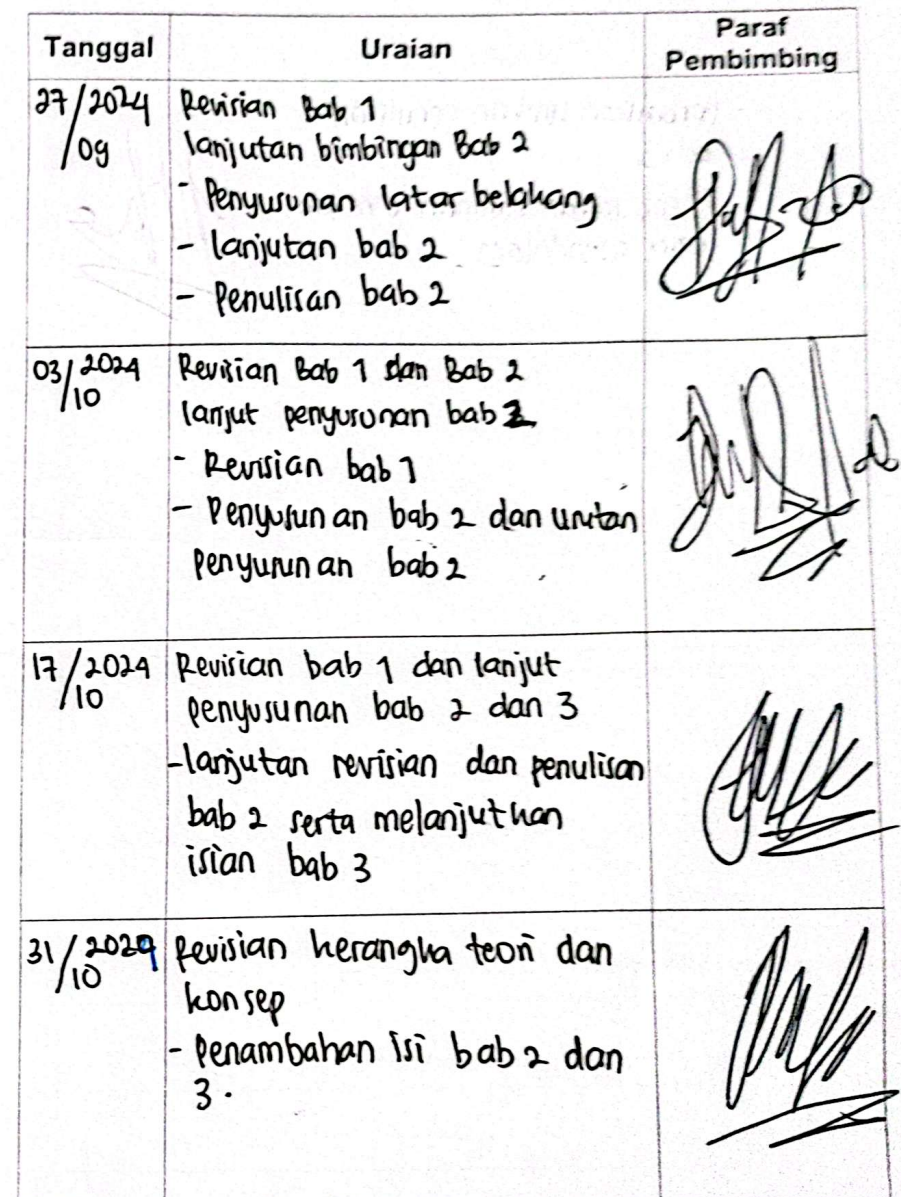 Tanggal
Uraian
Paraf
Pembimbing
27/2024
/09
Revisian Bab 1
lanjutan bimbingan Bab 2
- Penyusunan latar belakang
- lanjutan bab 2
- Penulisan bab 2
03/2024
/10
Revisian Bab 1 dan Bab 2
lanjut penyusunan bab 2
- Revisian bab 1
- Penyusunan bab 2 dan urutan
penyusunan bab 2
17/2024
/10
Revisian bab 1 dan lanjut
penyusunan bab 2 dan 3
- lanjutan revisian dan penulisan
bab 2 serta melanjutkan
isian bab 3
31/2024
/10
Revisian kerangka teori dan
konsep
- Penambahan isi bab 2 dan
3.